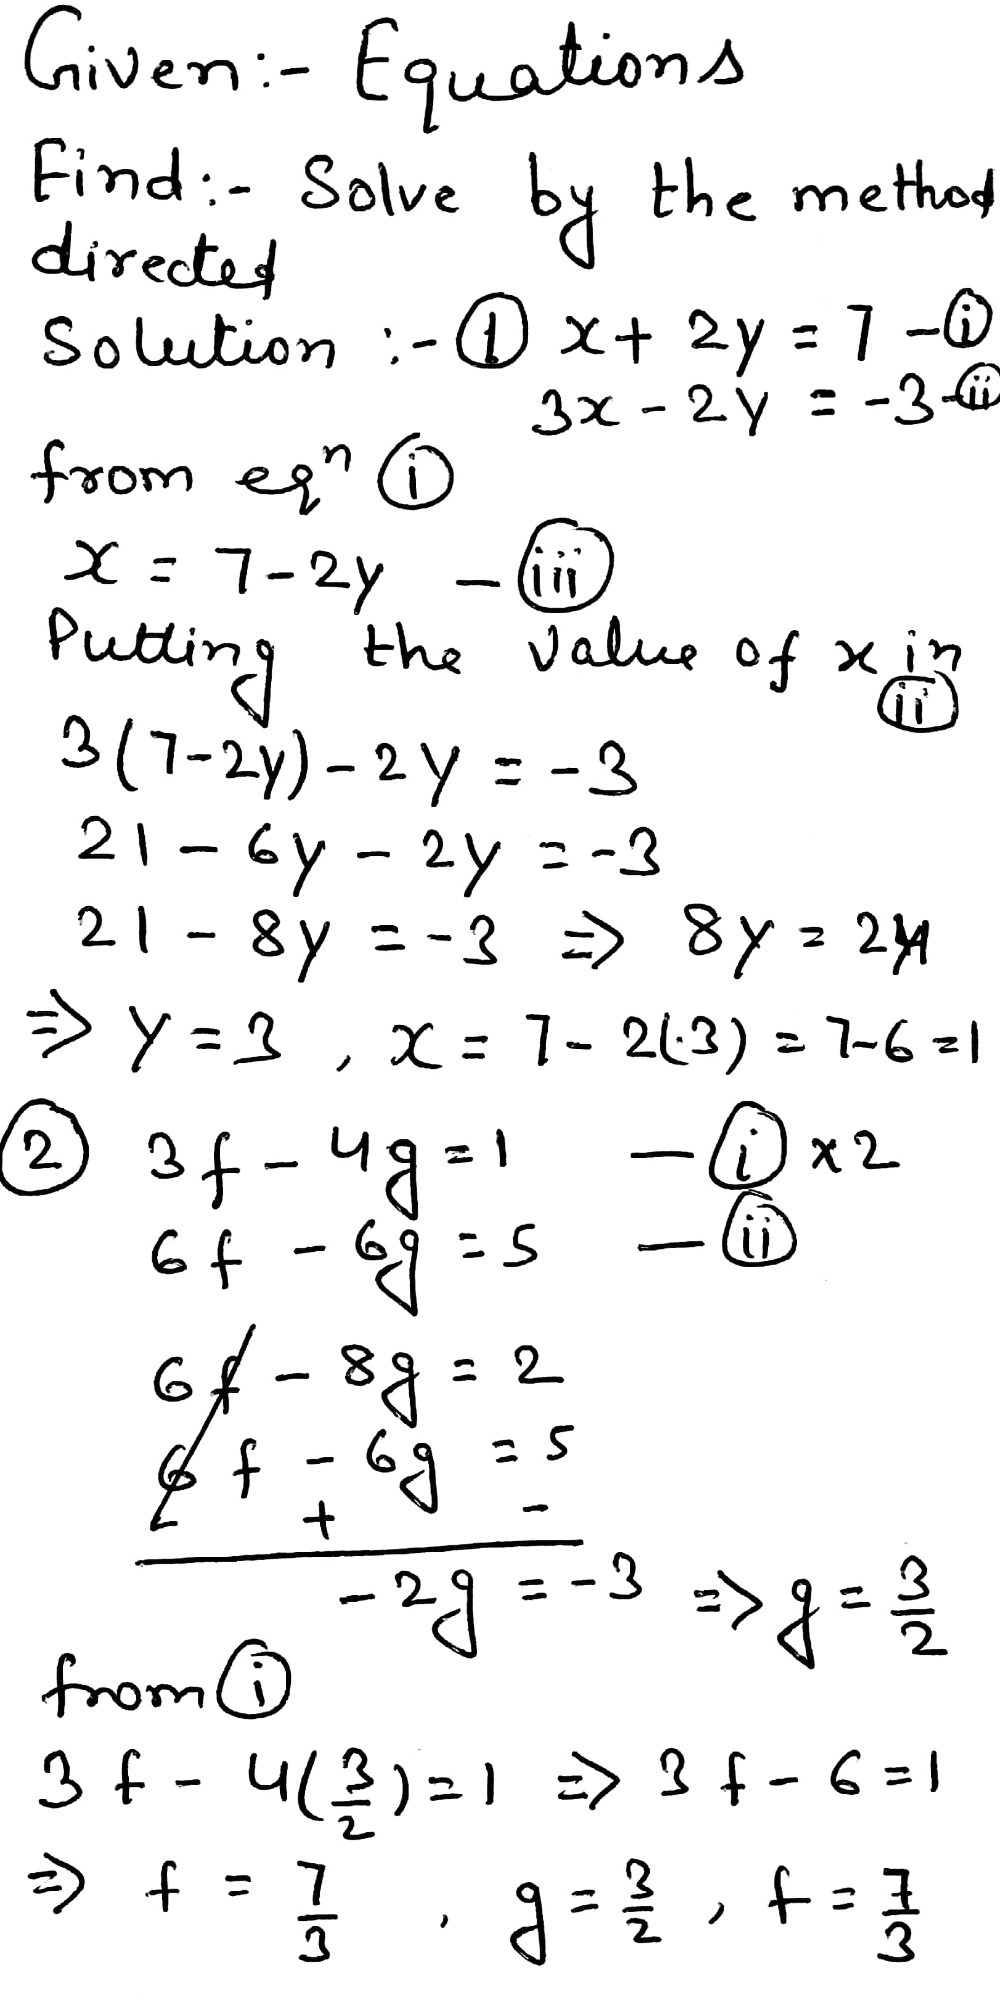 Given:- Equations
Find:- Solve by the method
directed
Solution :- ① x + 2y = 7 - ⓘ
3x - 2y = -3 - ⓘⓘ
from eqⁿ ⓘ
x = 7 - 2y - ⓘⓘⓘ
Putting the value of x in
ⓘⓘ
3(7-2y) - 2y = -3
21 - 6y - 2y = -3
21 - 8y = -3 => 8y = 24
=> y = 3 , x = 7 - 2(3) = 7-6 = 1
② 3f - 4g = 1 - ⓘ x 2
6f - 6g = 5 - ⓘⓘ
6f - 8g = 2
6f - 6g = 5
- + -
-2g = -3 => g = 3/2
from ⓘ
3f - 4(3/2) = 1 => 3f - 6 = 1
=> f = 7/3 , g = 3/2 , f = 7/3